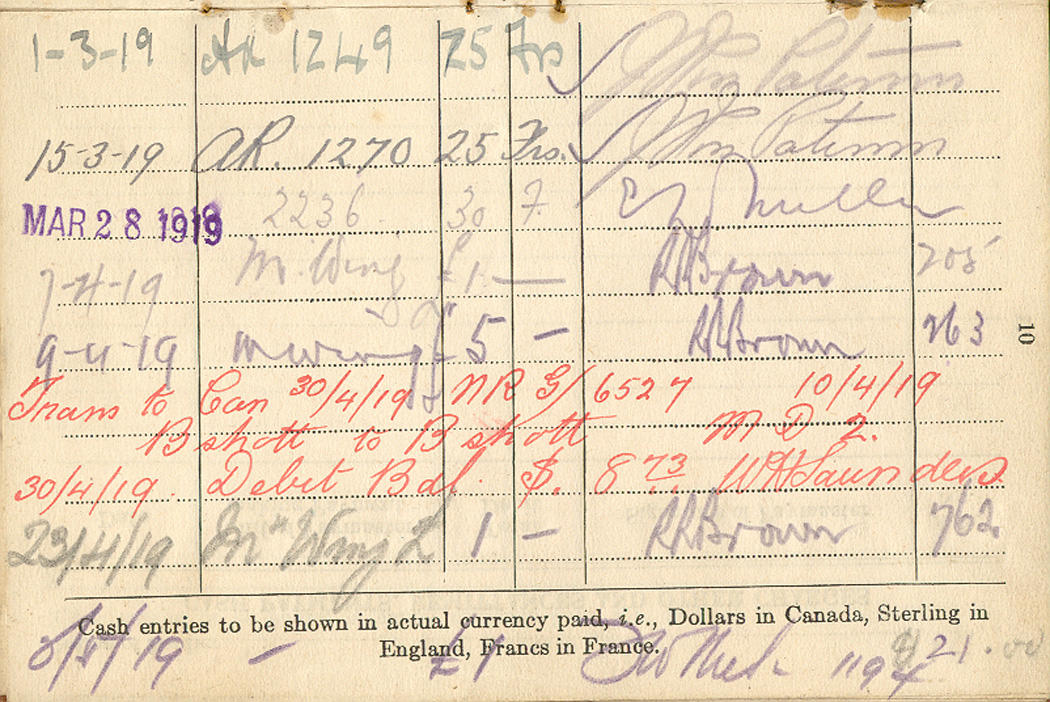 1-3-19 AR 1249 25 Frs Wm Paterson
15-3-19 AR. 1270 25 Frs. Wm Paterson
MAR 28 1919 2236 30 F.
7-4-19 M. Wing £1 — RR Brown 705
9-4-19 M Wing £5 — RR Brown 763
Trans to Can 30/4/19 NR G/6527 10/4/19
B shott to B shott M D 2.
30/4/19. Debit Bal. $. 8 73 WH Saunders
23/4/19 M Wing £ 1 — RR Brown 762
Cash entries to be shown in actual currency paid, i.e., Dollars in Canada, Sterling in
England, Francs in France.
/5/19 — £1 1194 21.00
10